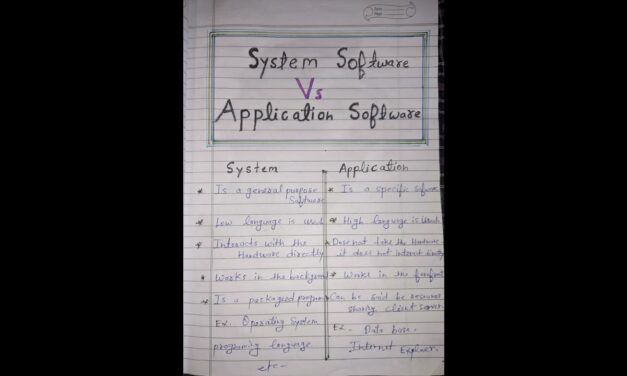 System Software
Vs
Application Software
System
Application
* Is a general purpose
Software
* Is a specific
* Low language is used
* High language is used
* Interacts with the
Hardware directly
* Does not take the Hardware
it does not interact directly
* Works in the background
* Works in the
* Is a packaged program
* Can be said be resource
sharing client server
Ex. Operating System
programing language.
etc-
Ex.
Data base.
Internet Explorer.